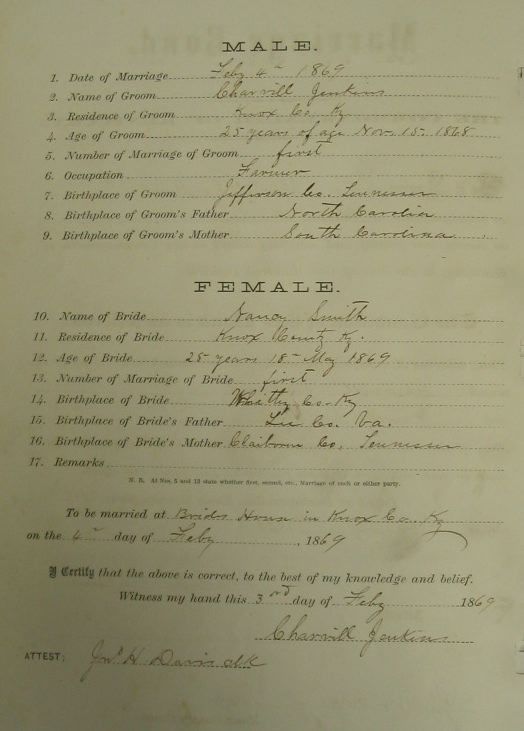 MALE.
1. Date of Marriage Feby 4th 1869
2. Name of Groom Charvill Jenkins
3. Residence of Groom Knox Co. Ky
4. Age of Groom 25 years of age Nov. 15th 1868
5. Number of Marriage of Groom first
6. Occupation Farmer
7. Birthplace of Groom Jefferson Co. Tennessee
8. Birthplace of Groom's Father North Carolina
9. Birthplace of Groom's Mother South Carolina
FEMALE.
10. Name of Bride Nancy Smith
11. Residence of Bride Knox County Ky.
12. Age of Bride 25 years 18th May 1869
13. Number of Marriage of Bride first
14. Birthplace of Bride Whitley Co. Ky
15. Birthplace of Bride's Father Lee Co. Va.
16. Birthplace of Bride's Mother Claiborn Co. Tennessee
17. Remarks
N. B. At Nos. 5 and 13 state whether first, second, etc., Marriage of each or either party.
To be married at Brides House in Knox Co. Ky
on the 4th day of Feby, 1869
I Certify that the above is correct, to the best of my knowledge and belief.
Witness my hand this 3rd day of Feby 1869
Charvill Jenkins
ATTEST: Jno. H Davis clk